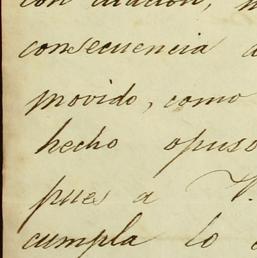 con citacion,
consecuencia a
movido, como
hecho opuso
pues a V.
cumpla lo